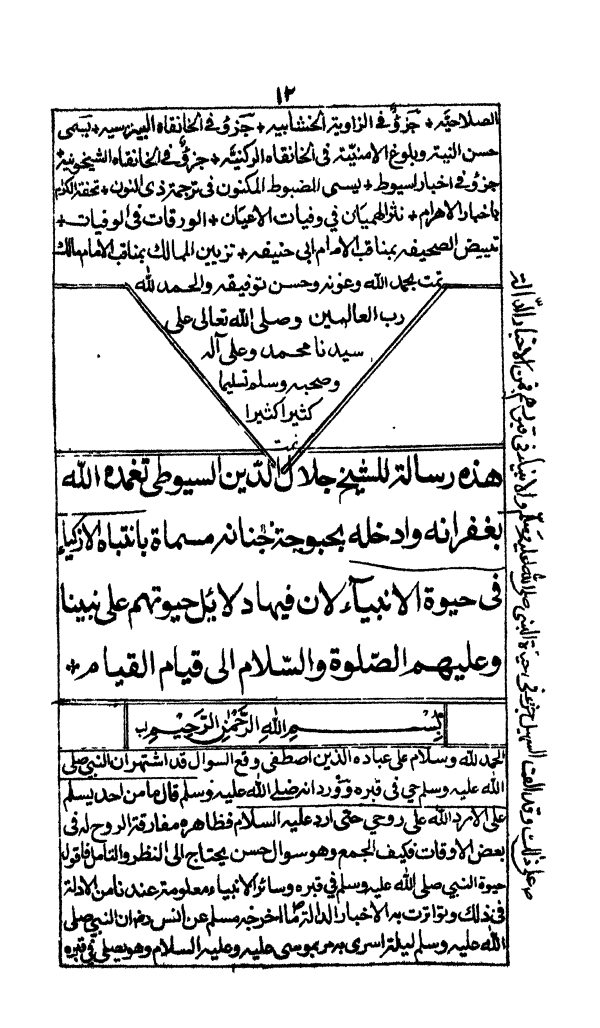 ١٢
الصلاحية + جزؤ فى الزاوية الخشابيه + جزؤ فى الخانقاه البيبرسيه + يسمى
حسن النية وبلوغ الامنيّة فى الخانقاه الركنيّة + جزؤ فى الخانقاه الشيخونية
جزؤ فى اخبار اسيوط + يسمى المضبوط المكنون فى ترجمة ذى النون + تحفة الكرام
باخبار الاهرام + نثر الهميان فى وفيات الاعيان + الورقات فى الوفيات +
تبييض الصحيفه بمناقب الامام ابى حنيفه + تزيين الممالك بمناقب الامام مالك
تمت بحمد الله وعونه وحسن توفيقه والحمد لله
رب العالمين وصلى الله تعالى على
سيدنا محمد وعلى آله
وصحبه وسلم تسليما
كثيرا كثيرا
تمت
هذه رسالة للشيخ جلال الدّين السيوطى تغمده الله
بغفرانه وادخله بحبوحة جنانه مسماة بانتباه الازكياء
فى حيوة الانبيآء لان فيها دلايل حيوتهم على نبينا
وعليهم الصّلوة والسّلام الى قيام القيام +
بسم الله الرّحمٰن الرّحيم
الحمد لله وسلام على عباده الذين اصطفى وقع السوال قد اشتهر ان النبى صلى
الله عليه وسلم حي فى قبره وورد انه صلى الله عليه وسلم قال ما من احد يسلم
على الا رد الله على روحي حتى ارد عليه السلام فظاهره مفارقة الروح له فى
بعض الاوقات فكيف الجمع وهو سوال حسن يحتاج الى النظر والتامل فاقول
حيوة النبي صلى الله عليه وسلم فى قبره وسائر الانبياء معلومة عندنا من الادلة
فى ذلك وتواترت به الاخبار الدالة مما اخرجه مسلم عن انس رض ان النبى صلى
الله عليه وسلم ليلة اسرى به مر بموسى عليه وعليه السلام وهو يصلى فى قبره
على ذلك وقد الف البيهقي جزء فى حياة النبى صلى الله عليه وسلم والانبياء فى قبورهم فمن الاخبار الدالة